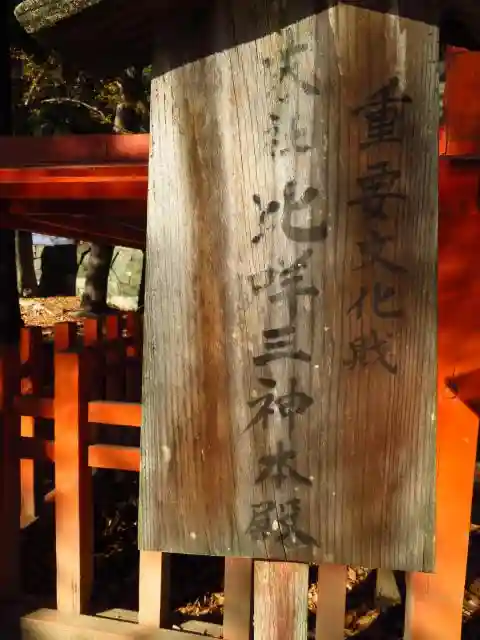 重要文化財
末社 池咩三神本殿